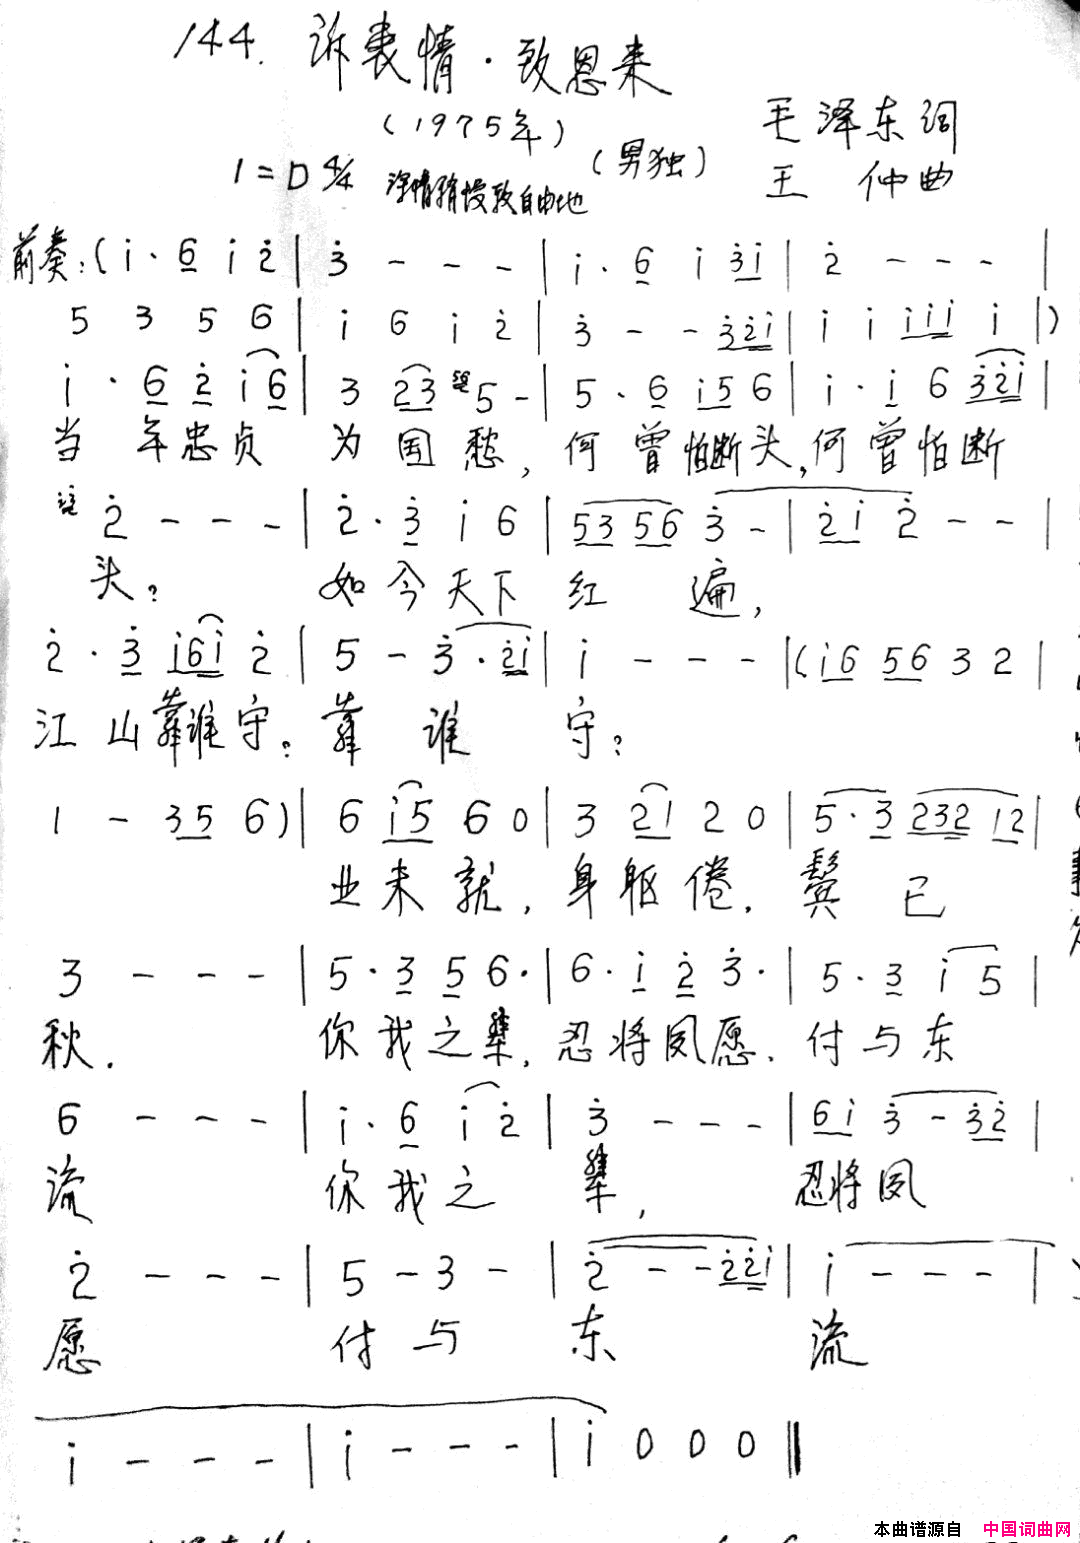 144. 诉衷情·致恩来
(1975年)
毛泽东词
1=D 4/4 深情稍慢较自由地 (男独)
王 仲曲
前奏:(i·6 i 2|3 - - -|i·6 i 3i|2 - - -|
5 3 5 6|i 6 i 2|3 - - 32i|i i iii i|)
i·6 2 i6|3 23 5-|5·6 i56|i·i 6 32i|
当年忠贞 为国愁,何曾怕断头,何曾怕断
2 - - -|2·3 i 6|53 56 3-|2i 2 - -|
头? 如今天下 红 遍,
2·3 i6i 2|5 - 3·2i|i - - -|(i6 56 3 2|
江山靠谁守。靠 谁 守?
1 - 35 6)|6 i5 6 0|3 21 2 0|5·3 232 12|
业未就,身躯倦,鬓 已
3 - - -|5·3 5 6·|6·i 2 3·|5·3 i 5|
秋. 你我之辈,忍将夙愿.付与东
6 - - -|i·6 i 2|3 - - -|6i 3 - 32|
流 你我之 辈, 忍将夙
2 - - -|5 - 3 -|2 - - 22i|i - - -|
愿 付 与 东 流
i - - -|i - - -|i 0 0 0‖
本曲谱源自 中国词曲网